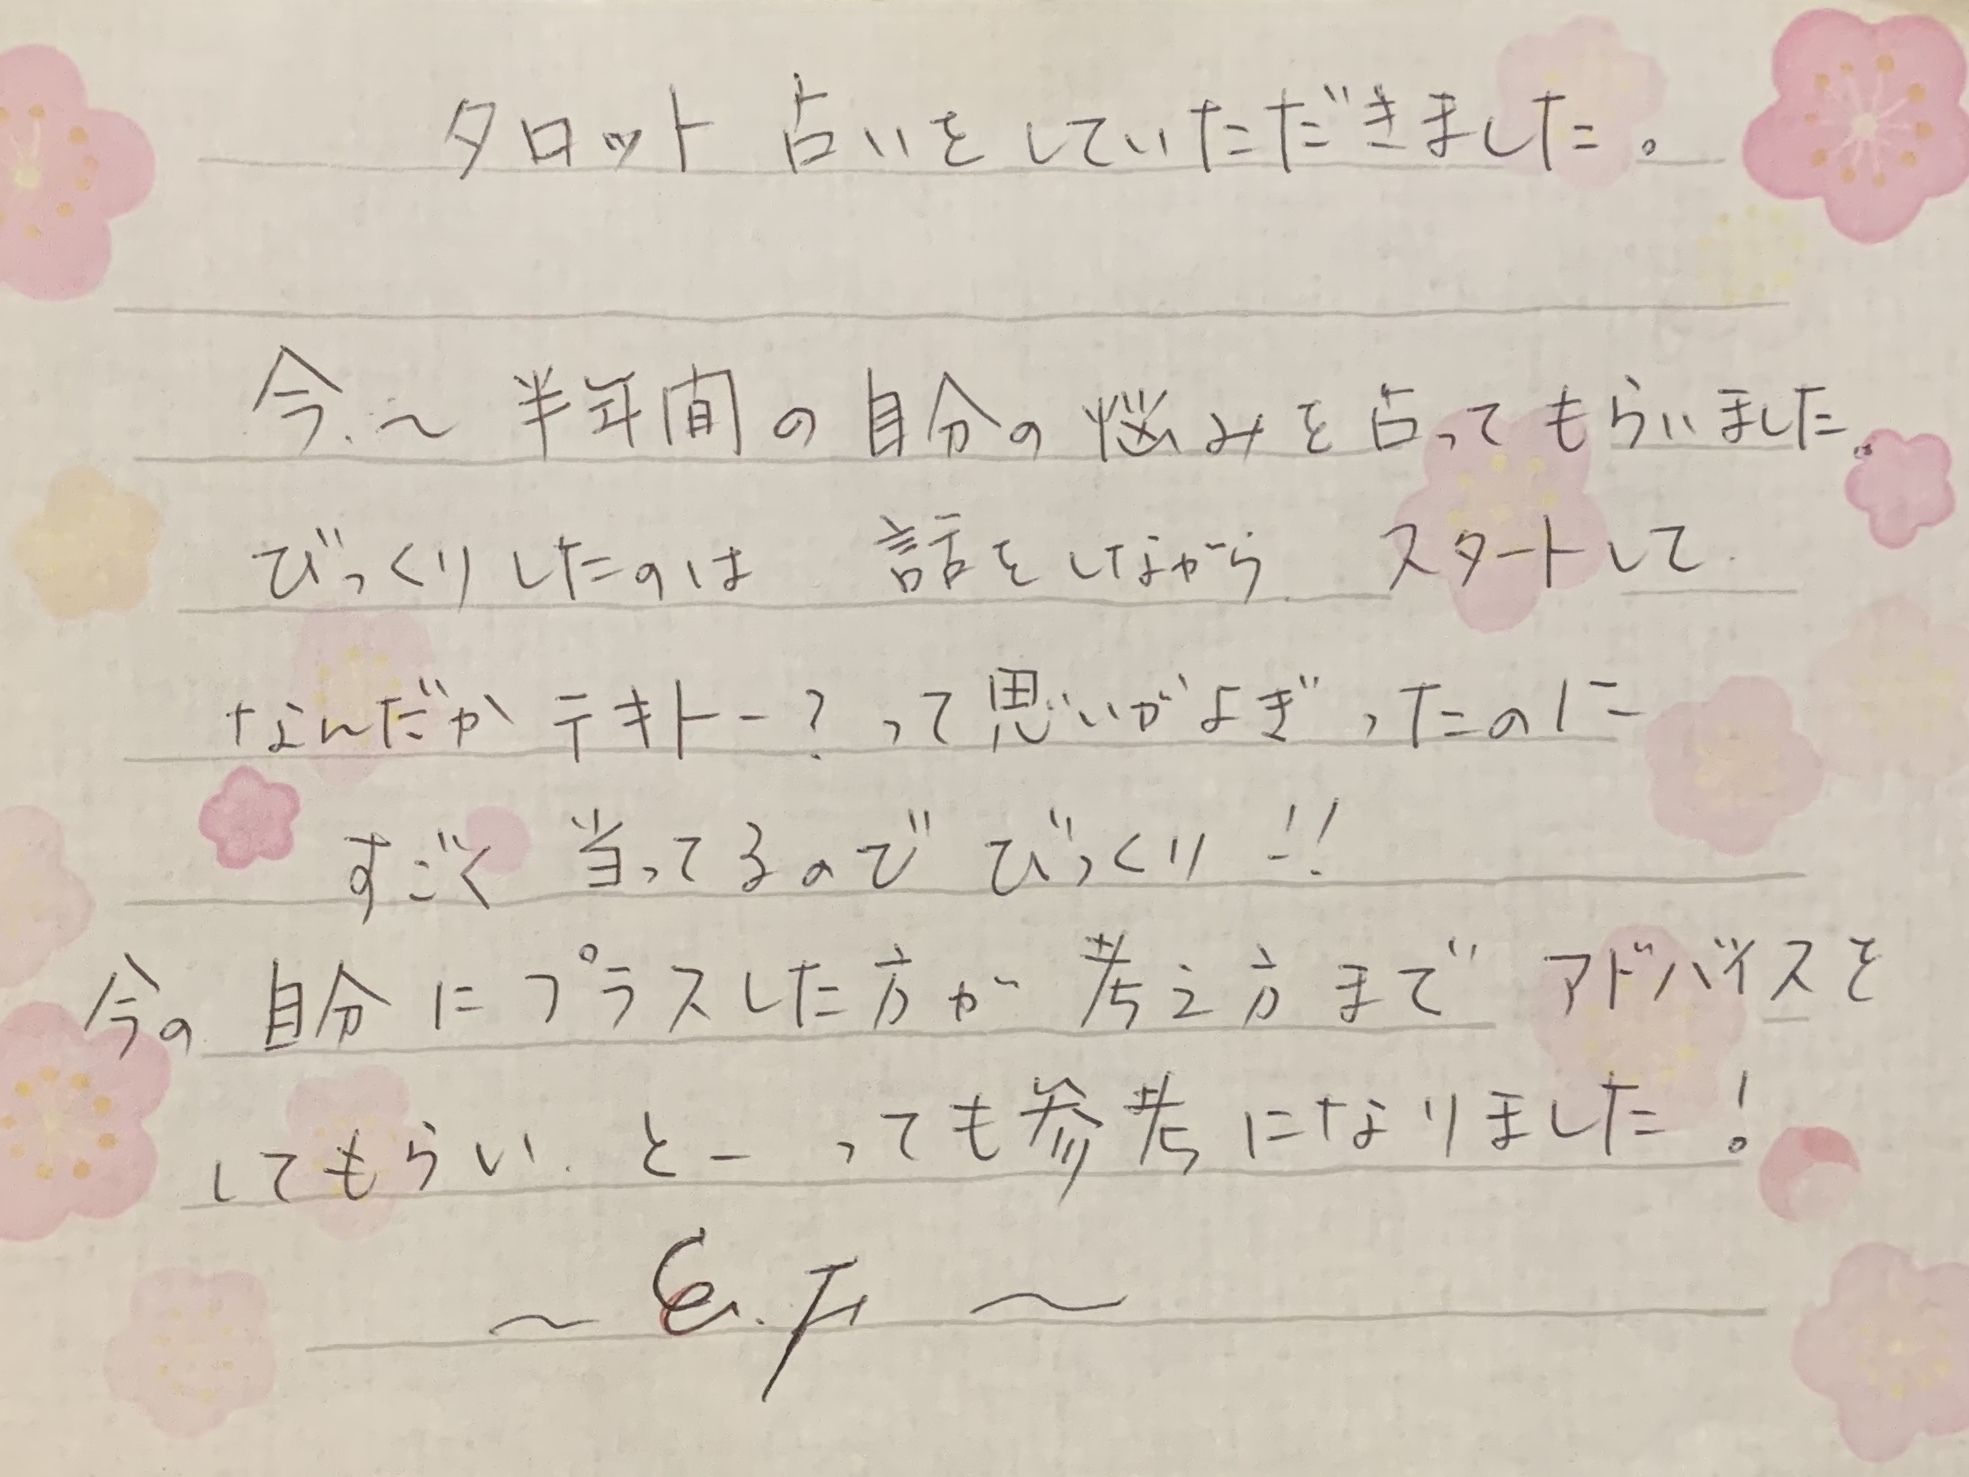 タロット占いをしていただきました。
今.〜半年間の自分の悩みを占ってもらいました。
びっくりしたのは 話をしながら スタートして
なんだかテキトー?って思いがよぎったのに
すごく当ってるのでびっくり!!
今の自分にプラスした方が考え方までアドバイスを
してもらい、とーっても参考になりました!